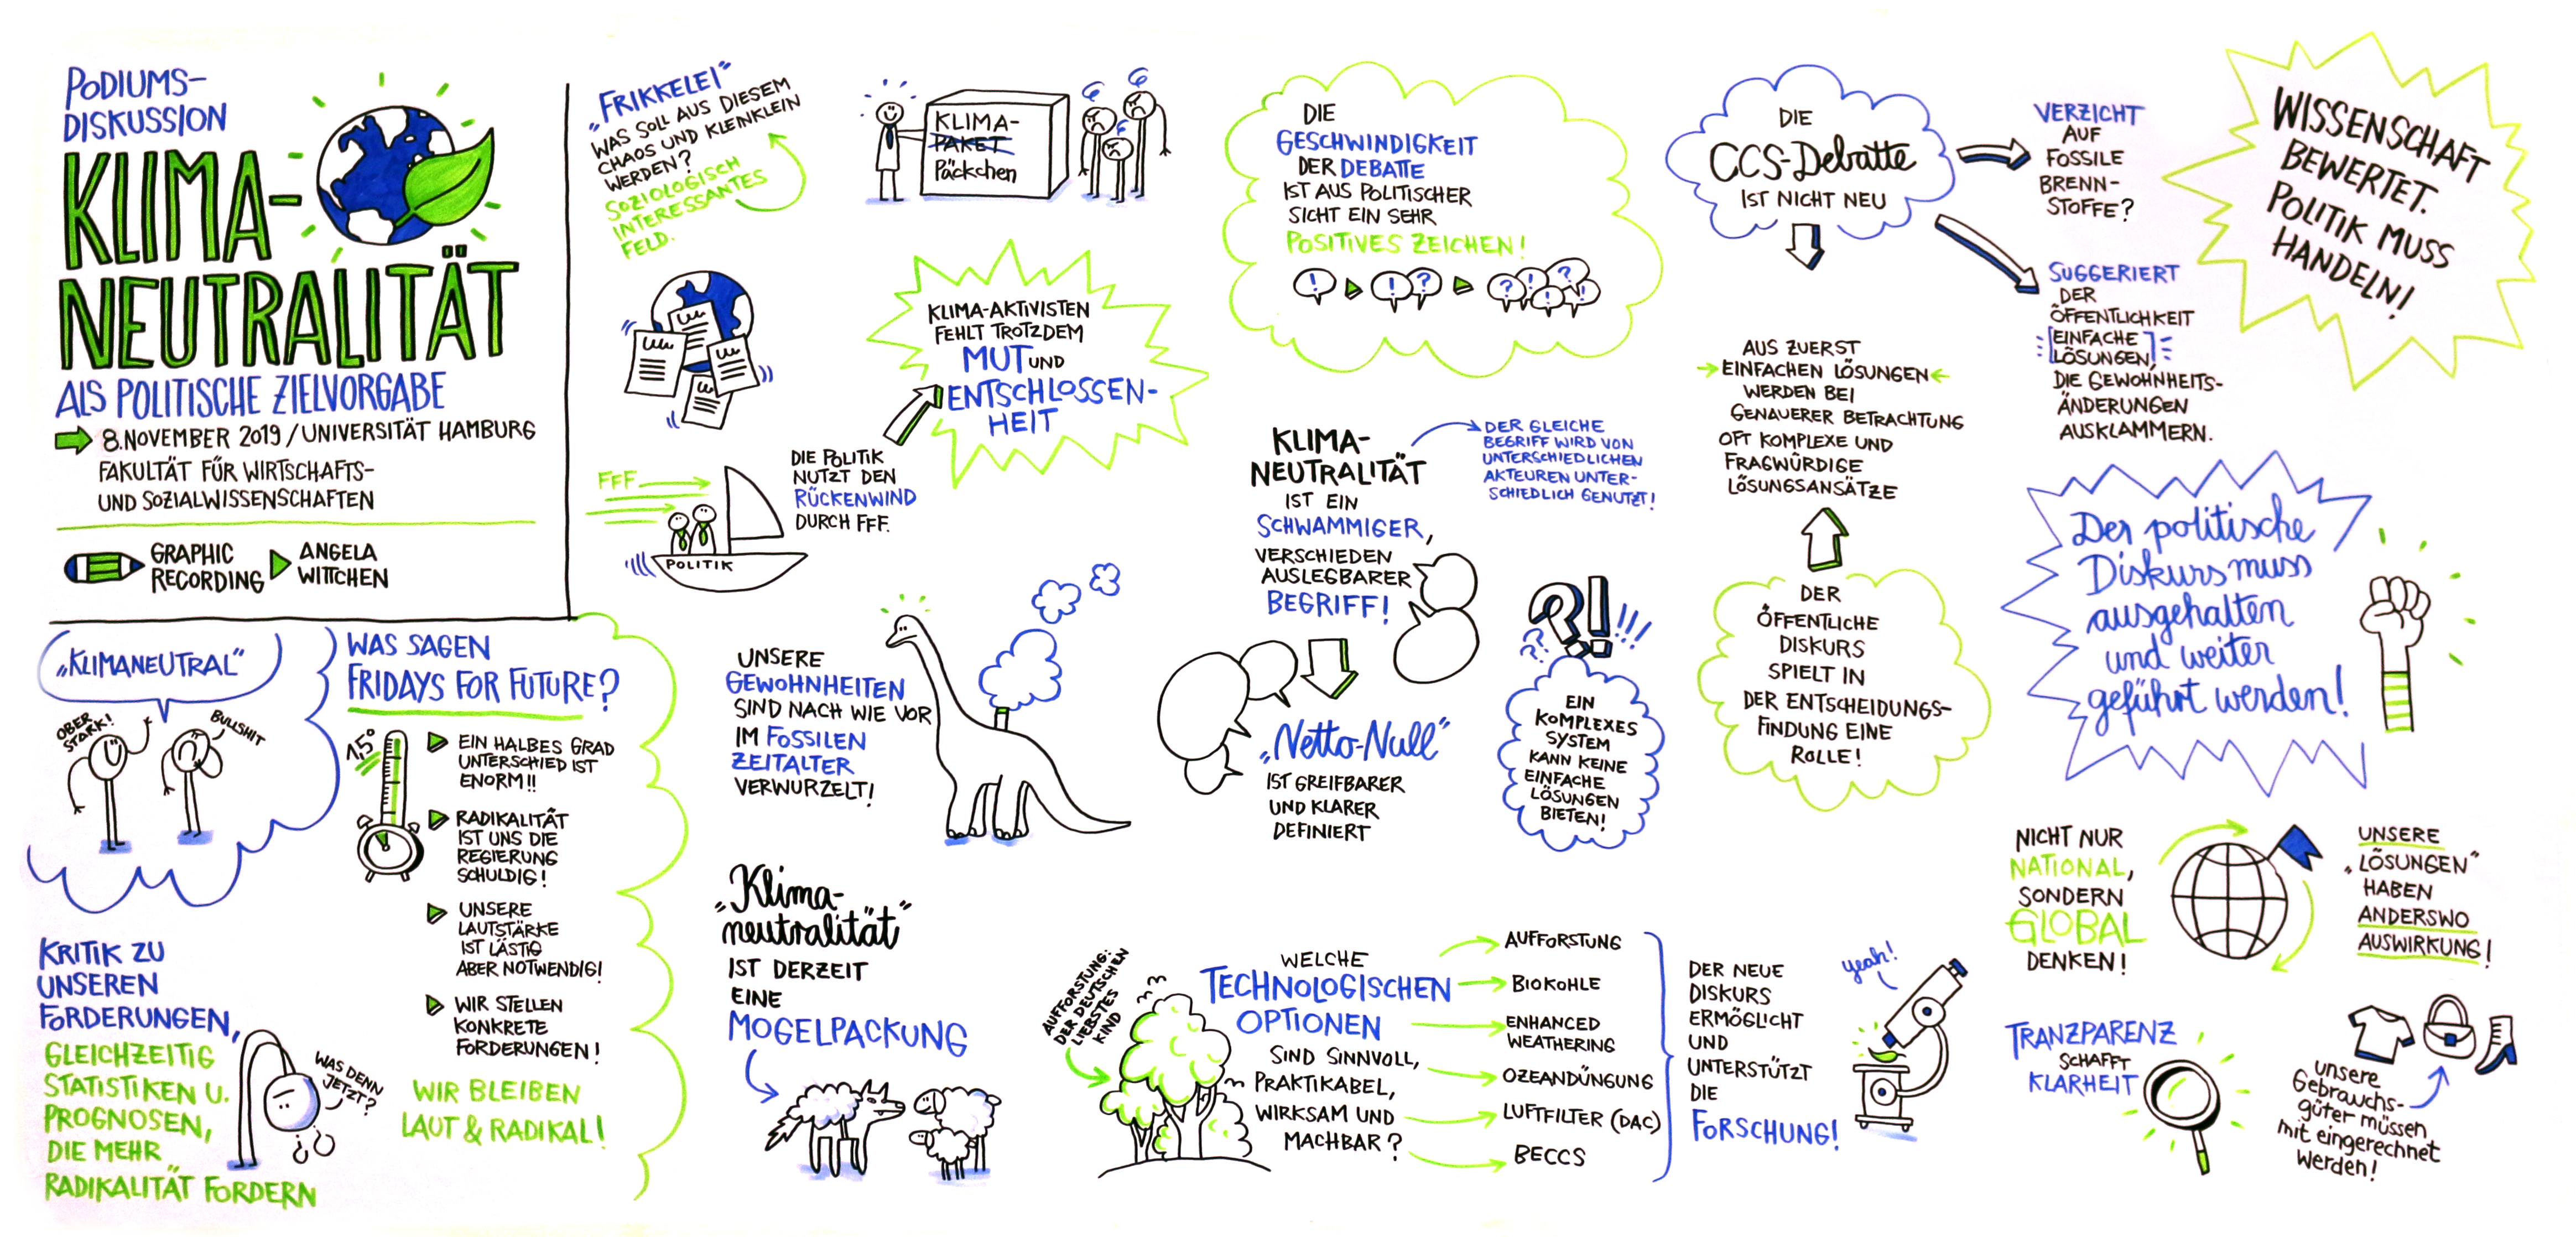 PODIUMS-
DISKUSSION
KLIMA-
NEUTRALITÄT
ALS POLITISCHE ZIELVORGABE
8. NOVEMBER 2019 / UNIVERSITÄT HAMBURG
FAKULTÄT FÜR WIRTSCHAFTS-
UND SOZIALWISSENSCHAFTEN
GRAPHIC
RECORDING
ANGELA
WITTCHEN
„KLIMANEUTRAL"
OBER
STARK!
BULLSHIT
WAS SAGEN
FRIDAYS FOR FUTURE?
1,5°
EIN HALBES GRAD
UNTERSCHIED IST
ENORM!!
RADIKALITÄT
IST UNS DIE
REGIERUNG
SCHULDIG!
UNSERE
LAUTSTÄRKE
IST LÄSTIG
ABER NOTWENDIG!
WIR STELLEN
KONKRETE
FORDERUNGEN!
WIR BLEIBEN
LAUT & RADIKAL!
KRITIK ZU
UNSEREN
FORDERUNGEN,
GLEICHZEITIG
STATISTIKEN U.
PROGNOSEN,
DIE MEHR
RADIKALITÄT FORDERN
WAS DENN
JETZT?
„FRIKKELEI"
WAS SOLL AUS DIESEM
CHAOS UND KLEINKLEIN
WERDEN?
SOZIOLOGISCH
INTERESSANTES
FELD.
KLIMA-
PAKET
Päckchen
KLIMA-AKTIVISTEN
FEHLT TROTZDEM
MUT UND
ENTSCHLOSSEN-
HEIT
FFF
POLITIK
DIE POLITIK
NUTZT DEN
RÜCKENWIND
DURCH FFF.
UNSERE
GEWOHNHEITEN
SIND NACH WIE VOR
IM FOSSILEN
ZEITALTER
VERWURZELT!
„Klima-
neutralität"
IST DERZEIT
EINE
MOGELPACKUNG
DIE
GESCHWINDIGKEIT
DER DEBATTE
IST AUS POLITISCHER
SICHT EIN SEHR
POSITIVES ZEICHEN!
! ! ? ? ! ? ! !
KLIMA-
NEUTRALITÄT
IST EIN
SCHWAMMIGER,
VERSCHIEDEN
AUSLEGBARER
BEGRIFF!
DER GLEICHE
BEGRIFF WIRD VON
UNTERSCHIEDLICHEN
AKTEUREN UNTER-
SCHIEDLICH GENUTZT!
„Netto-Null"
IST GREIFBARER
UND KLARER
DEFINIERT
?!
??
!!!
EIN
KOMPLEXES
SYSTEM
KANN KEINE
EINFACHE
LÖSUNGEN
BIETEN!
AUFFORSTUNG:
DER DEUTSCHEN
LIEBSTES
KIND
WELCHE
TECHNOLOGISCHEN
OPTIONEN
SIND SINNVOLL,
PRAKTIKABEL,
WIRKSAM UND
MACHBAR?
AUFFORSTUNG
BIOKOHLE
ENHANCED
WEATHERING
OZEANDÜNGUNG
LUFTFILTER (DAC)
BECCS
DER NEUE
DISKURS
ERMÖGLICHT
UND
UNTERSTÜTZT
DIE
FORSCHUNG!
yeah!
DIE
CCS-Debatte
IST NICHT NEU
VERZICHT
AUF
FOSSILE
BRENN-
STOFFE?
SUGGERIERT
DER
ÖFFENTLICHKEIT
EINFACHE
LÖSUNGEN,
DIE GEWOHNHEITS-
ÄNDERUNGEN
AUSKLAMMERN.
AUS ZUERST
EINFACHEN LÖSUNGEN
WERDEN BEI
GENAUERER BETRACHTUNG
OFT KOMPLEXE UND
FRAGWÜRDIGE
LÖSUNGSANSÄTZE
DER
ÖFFENTLICHE
DISKURS
SPIELT IN
DER ENTSCHEIDUNGS-
FINDUNG EINE
ROLLE!
WISSENSCHAFT
BEWERTET.
POLITIK MUSS
HANDELN!
Der politische
Diskurs muss
ausgehalten
und weiter
geführt werden!
NICHT NUR
NATIONAL,
SONDERN
GLOBAL
DENKEN!
UNSERE
„LÖSUNGEN"
HABEN
ANDERSWO
AUSWIRKUNG!
TRANZPARENZ
SCHAFFT
KLARHEIT
unsere
Gebrauchs-
güter müssen
mit eingerechnet
werden!